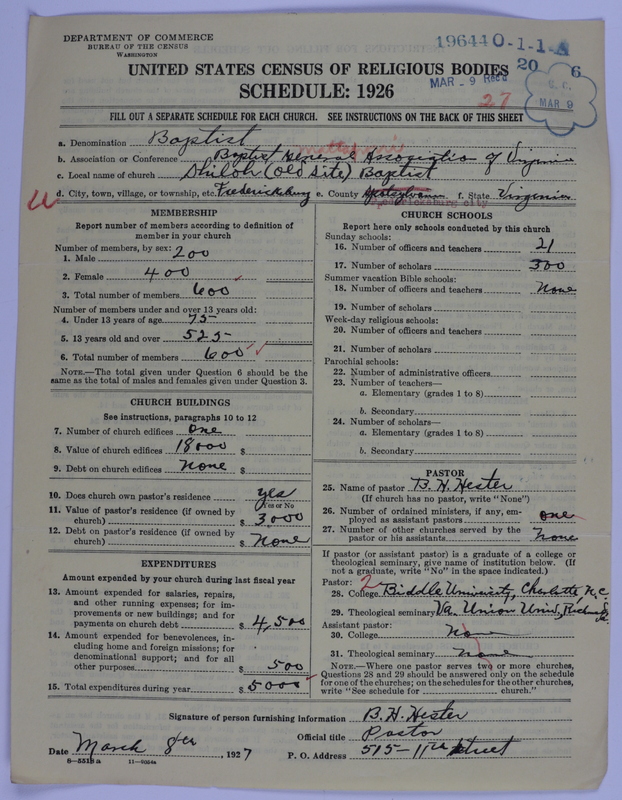 DEPARTMENT OF COMMERCE
BUREAU OF THE CENSUS
WASHINGTON
196440-1-1-A
UNITED STATES CENSUS OF RELIGIOUS BODIES
20 6
SCHEDULE: 1926
MAR - 9 Rec'd
27
S. C.
MAR 9
FILL OUT A SEPARATE SCHEDULE FOR EACH CHURCH. SEE INSTRUCTIONS ON THE BACK OF THIS SHEET
a. Denomination Baptist
b. Association or Conference Baptist General Association of Virginia
c. Local name of church Shiloh (Old Site) Baptist
d. City, town, village, or township, etc. Fredericksburg e. County Spotsylvania f. State Virginia
Fredericksburg city
MEMBERSHIP
Report number of members according to definition of member in your church
Number of members, by sex:
1. Male 200
2. Female 400
3. Total number of members 600
Number of members under and over 13 years old:
4. Under 13 years of age 75
5. 13 years old and over 525
6. Total number of members 600
NOTE.—The total given under Question 6 should be the same as the total of males and females given under Question 3.
CHURCH BUILDINGS
See instructions, paragraphs 10 to 12
7. Number of church edifices One
8. Value of church edifices 18000 $
9. Debt on church edifices None $
10. Does church own pastor's residence yes
Yes or No
11. Value of pastor's residence (if owned by church) $ 3000
12. Debt on pastor's residence (if owned by church) $ None
EXPENDITURES
Amount expended by your church during last fiscal year
13. Amount expended for salaries, repairs, and other running expenses; for improvements or new buildings; and for payments on church debt $ 4,500
14. Amount expended for benevolences, including home and foreign missions; for denominational support; and for all other purposes $ 500
15. Total expenditures during year $ 5000
CHURCH SCHOOLS
Report here only schools conducted by this church
Sunday schools:
16. Number of officers and teachers 21
17. Number of scholars 300
Summer vacation Bible schools:
18. Number of officers and teachers None
19. Number of scholars
Week-day religious schools:
20. Number of officers and teachers
21. Number of scholars
Parochial schools:
22. Number of administrative officers
23. Number of teachers—
a. Elementary (grades 1 to 8)
b. Secondary
24. Number of scholars—
a. Elementary (grades 1 to 8)
b. Secondary
PASTOR
25. Name of pastor B. H. Hester
(If church has no pastor, write "None")
26. Number of ordained ministers, if any, employed as assistant pastors one
27. Number of other churches served by the pastor or his assistants None
If pastor (or assistant pastor) is a graduate of a college or theological seminary, give name of institution below. (If not a graduate, write "No" in the space indicated.)
Pastor: 2
28. College Biddle University, Charlotte, N.C.
29. Theological seminary Va. Union Univ, Richmond
Assistant pastor:
30. College None
31. Theological seminary None
NOTE.—Where one pastor serves two or more churches, Questions 28 and 29 should be answered only on the schedule for one of the churches; on the schedules for the other churches, write "See schedule for church."
Signature of person furnishing information B. H. Hester
Official title Pastor
Date March 8th, 1927 P. O. Address 515-11th Street
8—5518 a 11—9064a